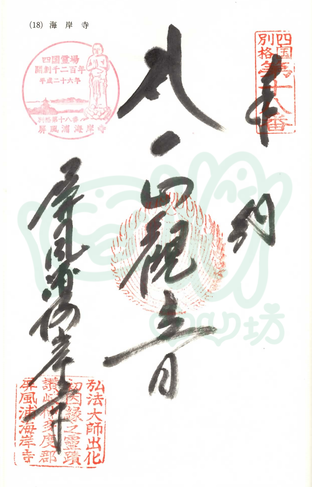 (18) 海岸寺
四国霊場
開創千二百年
平成二十六年
別格第十八番
屏風浦海岸寺
四国
別格第十八番
奉
別
正
観音
屏風浦海岸寺
弘法大師出化
初因縁之霊蹟
讃岐仲多度郡
屏風浦海岸寺